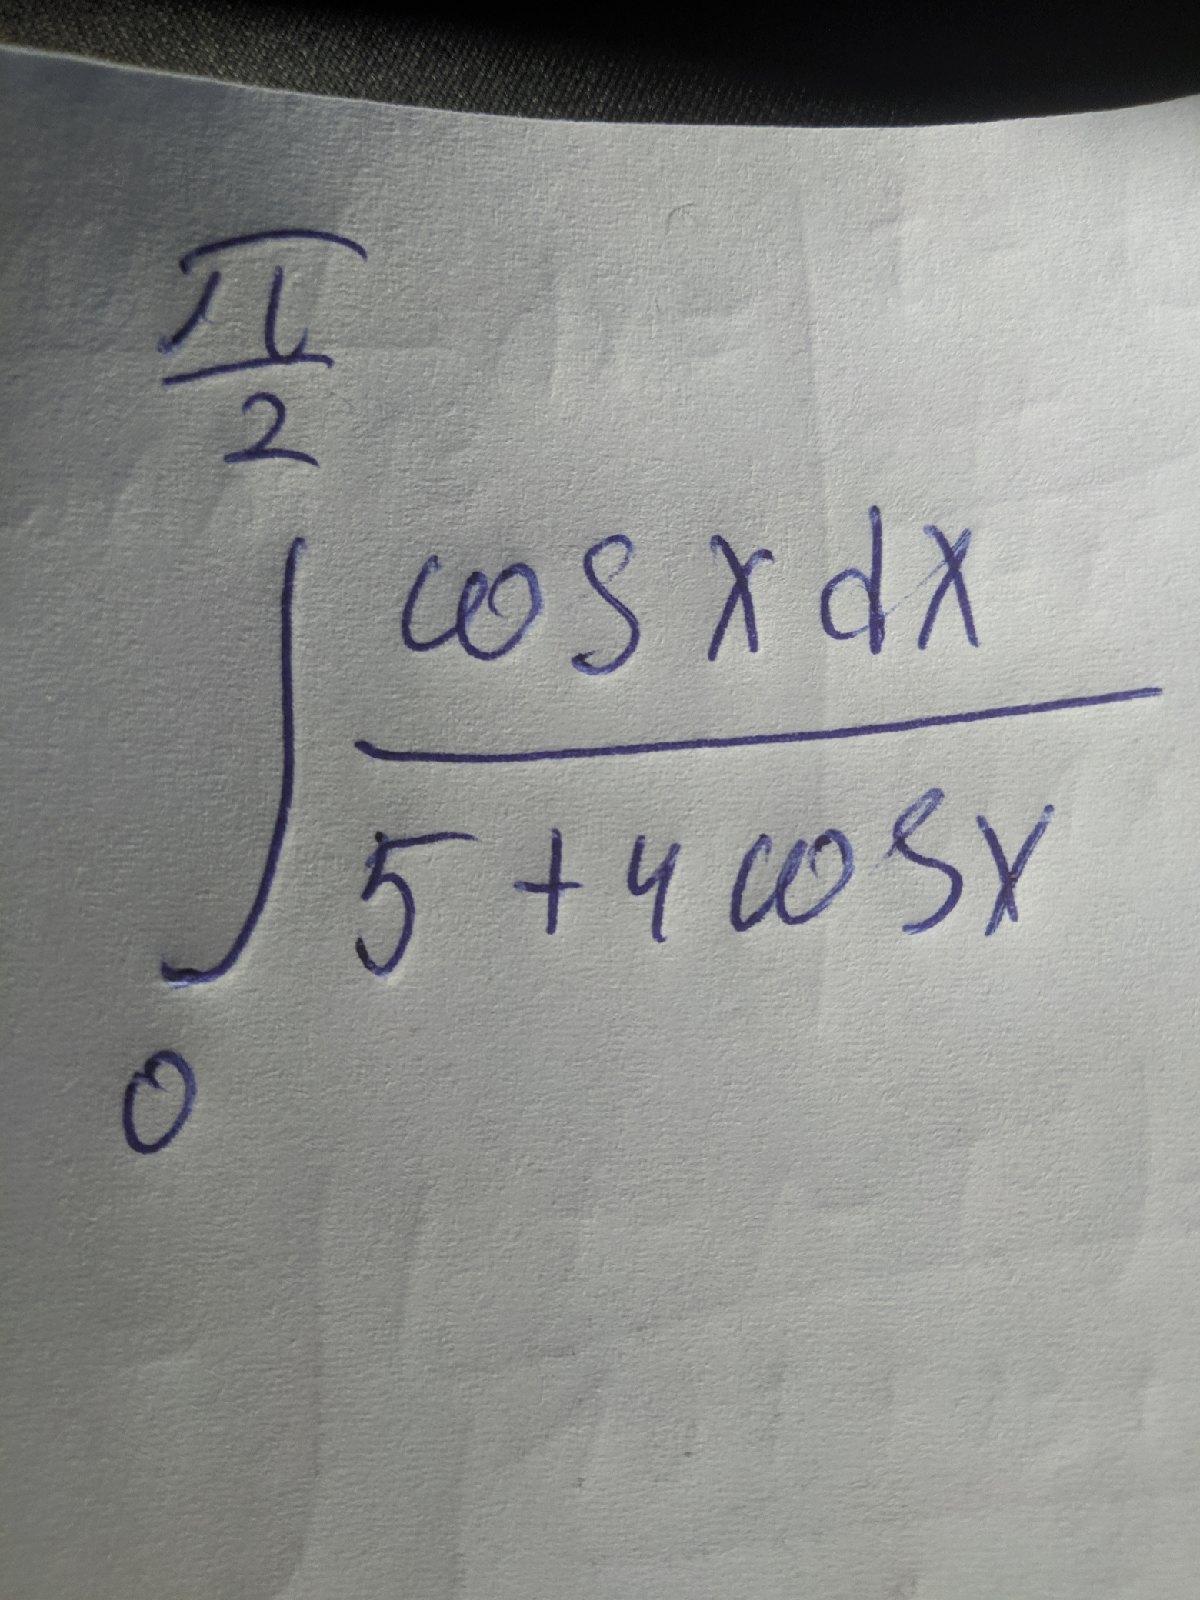 π
2
∫ cos x dx
5 + 4 cos x
0